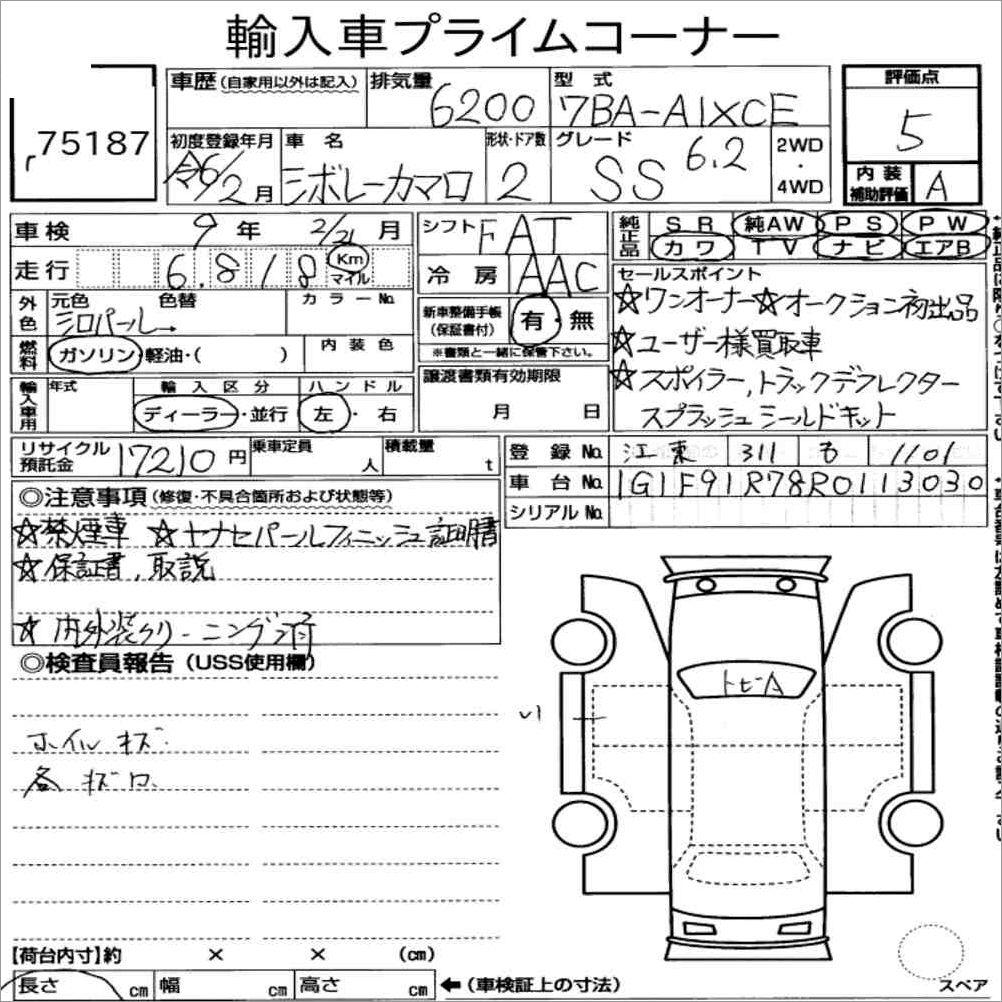 輸入車プライムコーナー
75187
車歴(自家用以外は記入)
排気量 6200
型式 7BA-A1XCE
評価点 5
初度登録年月 令6/2月
車名 シボレーカマロ
形状・ドア数 2
グレード SS 6.2
2WD・4WD
内装補助評価 A
車検 9年 2/21月
シフト F AT
純正品 SR 純AW PS PW
カワ TV ナビ エアB
走行 6.818 Km マイル
冷房 AAC
セールスポイント
☆ワンオーナー☆オークション初出品
☆ユーザー様買取車
☆スポイラー,トラックデフレクター
スプラッシュシールドキット
外色 元色 色替 カラーNo.
シロパール→
新車整備手帳(保証書付) 有・無
※書類と一緒に保管下さい。
燃料 ガソリン・軽油・( )
内装色
譲渡書類有効期限
月 日
輸入車用 年式 輸入区分 ハンドル
ディーラー・並行 左・右
リサイクル預託金 17210円
乗車定員 人
積載量 t
登録No. 江東 311 も 1101
車台No. 1G1F91R78R0113030
シリアルNo.
◎注意事項(修復・不具合箇所および状態等)
☆禁煙車 ☆ヤナセパールフィニッシュ証明書
☆保証書,取説
☆内外装クリーニング済
◎検査員報告(USS使用欄)
トビA
ホイルキズ
各キズロ
【荷台内寸】約 × × (cm)
長さ cm 幅 cm 高さ cm ←(車検証上の寸法)
スペア